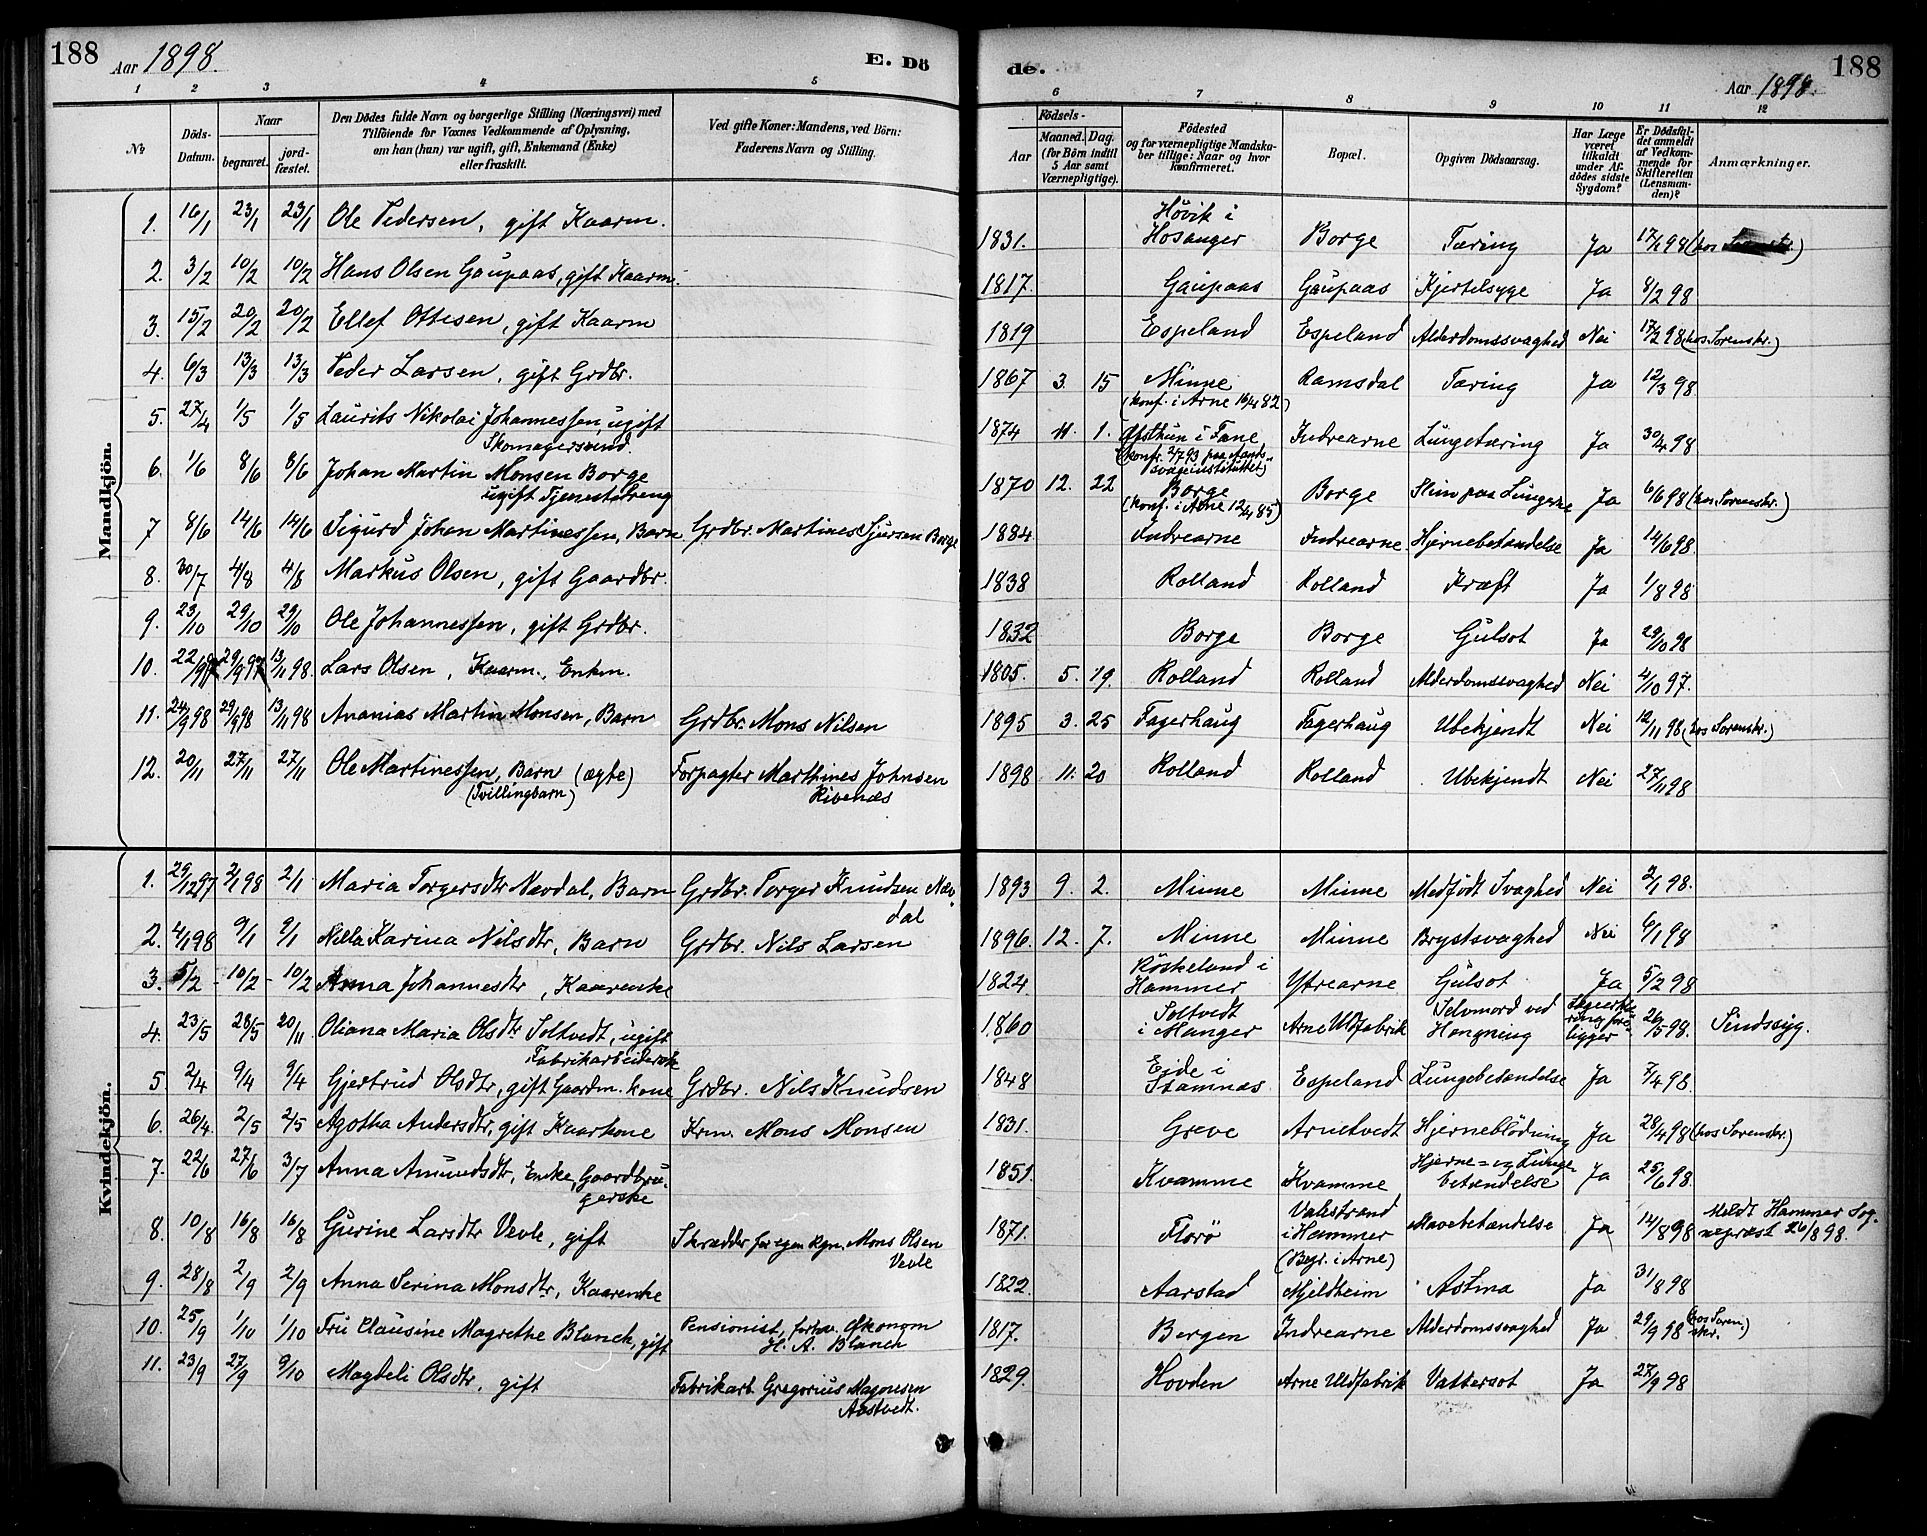 188 Aar 1898. E. Dö
de. Aar 1898. 188
1 2 3 4 5
6 7 8 9 10 11 12
No Döds-Datum. Naar begravet. jord-fæstet. Den Dödes fulde Navn og borgerlige Stilling (Næringsvei) med Tilföiende for Voxnes Vedkommende af Oplysning, om han (hun) var ugift, gift, Enkemand (Enke) eller fraskilt. Ved gifte Koner: Mandens, ved Börn: Faderens Navn og Stilling.
Födsels- Aar Maaned. Dag. (for Börn indtil 5 Aar samt Værnepligtige). Födested og for værnepligtige Mandskaber tillige: Naar og hvor konfirmeret. Bopæl. Opgiven Dödsaarsag. Har Læge været tilkaldt under Afdödes sidste Sygdom? Er Dödsfaldet anmeldt af Vedkommende for Skifteretten (Lensmanden)? Anmærkninger.
Mandkjön.
1. 16/1 23/1 23/1 Ole Pedersen, gift Kaarm. 1831. Høvik i Hosanger Borge Tæring Ja 17/1 98 (hos
2. 3/2 10/2 10/2 Hans Olsen Gaupaas, gift Kaarm. 1817. Gaupaas Gaupaas Kjertelsyge Ja 8/2 98
3. 15/2 20/2 20/2 Ellef Ottesen, gift Kaarm 1819 Espeland Espeland Alderdomssvaghed Nei 17/2 98 (hos Sorenskr.)
4. 6/3 13/3 13/3 Peder Larsen, gift Grdbr. 1867 3. 15 Minne (konf. i Arne 16/4 82) Ramsdal Tæring Ja 12/3 98
5. 27/4 1/5 1/5 Laurits Nikolai Johannessen, ugift Skomagersvend. 1874 11. 1. Øfsthun i Fane, (konfr. 2/7 93 paa Aandssvageinstituttet) Indrearne Lungetæring Ja 30/4 98
6. 1/6 8/6 8/6 Johan Martin Monsen Borge ugift Tjenestedreng 1870 12. 22 Borge (konf. i Arne 12/4 85) Borge Slim paa Lungerne Ja 6/6 98 (hos Sorenskr.)
7 8/6 14/6 14/6 Sigurd Johan Martinessen, Barn Grdbr. Martines Sjursen Borge 1884 Indrearne Indrearne Hjernebetændelse Ja 14/6 98.
8. 30/7 4/8 4/8 Markus Olsen, gift Gaardbr. 1838 Rolland Rolland Kræft Ja 1/8 98
9. 23/10 29/10 29/10 Ole Johannessen, gift Grdbr. 1832 Borge Borge Gulsot Ja 29/10 98
10. 22/9 97 29/9 97 13/11 98. Lars Olsen, Kaarm., Enkem. 1805. 5. 19. Rolland Rolland Alderdomssvaghed Nei 4/10 97.
11. 24/9 98 29/9 98 13/11 98 Ananias Martin Monsen, Barn Grdbr. Mons Nilsen 1895 3. 25 Fagerhaug Fagerhaug Ubekjendt Nei 12/11 98 (hos Sorenskr.)
12. 20/11 27/11 27/11 Ole Martinessen, Barn (ægte) (Tvillingbarn) Forpagter Marthines Johnsen Ribenæs 1898 11. 20 Rolland Rolland Ubekjendt Nei 27/11 98
Kvindekjön.
1. 29/12 97 2/1 98 2/1 Maria Torgersdtr Nævdal, Barn Grdbr. Torger Knudsen Nævdal 1893 9. 2. Minne Minne Medfödt Svaghed Nei 2/1 98.
2. 4/1 98 9/1 9/1 Nilla Karina Nilsdtr, Barn Grdbr. Nils Larsen 1896. 12. 7. Minne Minne Brystsvaghed Nei 6/1 98
3. 5/2 10/2 10/2 Anna Johannesdtr, Kaarenke 1824. Röskeland i Hammer Ytrearne Gulsot Ja 5/2 98
4. 23/5 28/5 20/11 Oliana Maria Olsdtr Soltvedt, ugift Fabrikarbeiderske 1860 Soltvedt i Manger Arne Uldfabrik Selvmord ved Hængning Lægeerklæring foreligger 26/5 98. Sindssyg.
5 2/4 9/4 9/4 Gjertrud Olsdtr, gift Gaardm. kone Grdbr. Nils Knudsen 1848 Eide i Stamnæs Espeland Lungebetændelse Ja 7/4 98.
6. 26/4 2/5 2/5 Agotha Andersdtr, gift Kaarkone Krm. Mons Monsen 1831. Greve Arnetvedt Hjerneblödning Ja 28/4 98 (hos Sorenskr.)
7. 22/6 27/6 3/7 Anna Amundsdtr, Enke, Gaardbrugerske 1851. Kvamme Kvamme Hjerne= og Lungebetændelse Ja 25/6 98.
8. 10/8 16/8 16/8 Gurine Larsdtr Vevle, gift Skrædder for egen Rgn. Mons Olsen Vevle 1871. Florö Valestrand i Hammer (Begr. i Arne) Mavebetændelse Ja 14/8 98 Meldt Hammer Sognepræst 26/8 98.
9. 28/8 2/9 2/9 Anna Serina Monsdtr, Kaarenke 1822. Aarstad Mjeldheim Astma Ja 31/8 98
10. 25/9 1/10 1/10 Fru Clausine Magrethe Blanck, gift Pensionist, forhv. Økonom H. A. Blanch 1817. Bergen Indrearne Alderdomssvaghed Ja 29/9 98 (hos Sorenskr.)
11. 23/9 27/9 9/10 Magteli Olsdtr, gift Fabrikarb. Gregorius Magnesen Aastvedt. 1829. Hovden Arne Uldfabrik Vattersot Ja 27/9 98